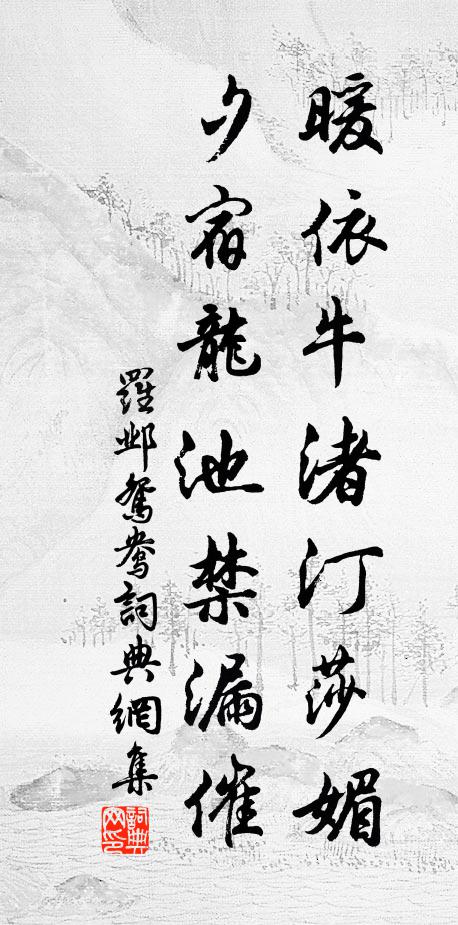 暖依牛渚汀莎媚
夕宿龍池禁漏催
羅鄴鴛鴦詞典網集
詞典網印